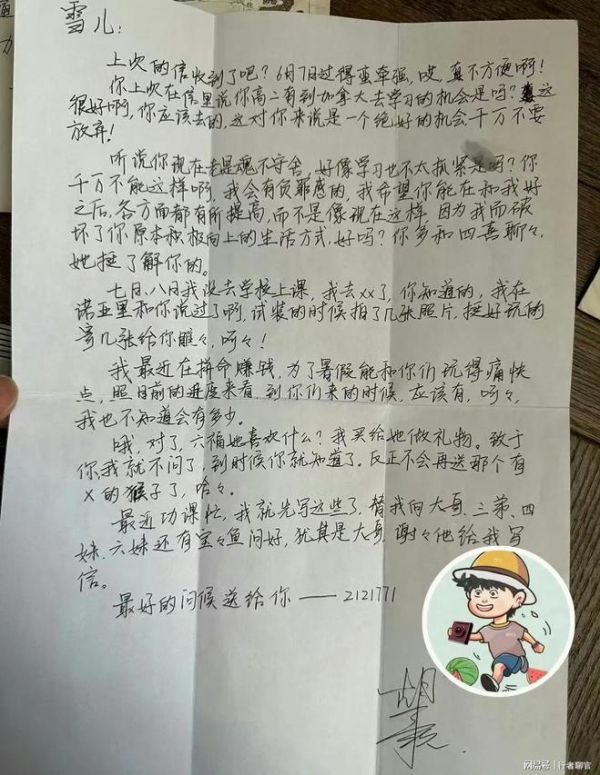 雪儿:
上次的信收到了吧?6月7日过得蛮牵强,哎,真不方便啊!
你上次在信里说你高二有到加拿大去学习的机会是吗?这
很好啊,你应该去的,这对你来说是一个绝好的机会,千万不要
放弃!
听说你现在老是魂不守舍,好像学习也不太抓紧是吗?你
千万不能这样啊,我会有负罪感的,我希望你能在和我好
之后,各方面都有所提高,而不是像现在这样,因为我而破
坏了你原本积极向上的生活方式,好吗?你多和四喜聊々,
她挺了解你的。
七日、八日我没去学校上课,我去xx了,你知道的,我在
诺亚里和你说过了啊,试装的时候拍了几张照片,挺好玩的
寄几张给你瞧々,呵々!
我最近在拼命赚钱,为了暑假能和你们玩得痛快
点,照目前的进度来看,到你们来的时候,应该有,呵々,
我也不知道会有多少。
哦,对了,六福她喜欢什么?我买给她做礼物。致于
你,我就不问了,到时候你就知道了。反正不会再送那个有
X的猴子了,哈々。
最近功课忙,我就先写这些了,替我向大哥、三弟、四
妹、六妹还有宝々鱼问好,犹其是大哥,谢々他给我写
信。
最好的问候送给你——2121771
胡
网易号|行者聊官